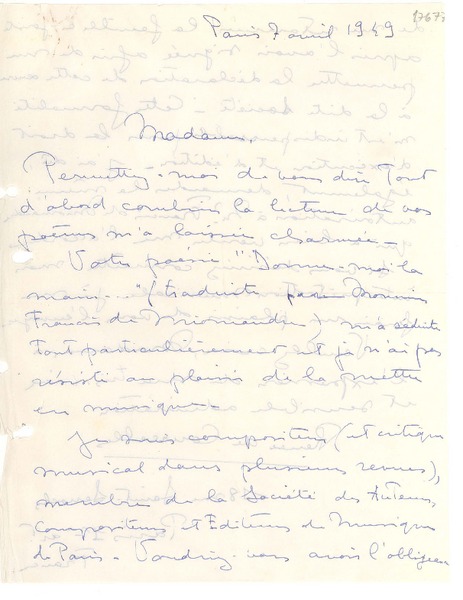 17677
Paris 7 avril 1949
Madame,
Permettez-moi de vous dire tout
d'abord combien la lecture de vos
poèmes m'a laissée charmée -
Votre poésie "Donne-moi la
main..." (traduite par Monsieur
Francis de Miomandre) m'a séduite
tout particulièrement et je n'ai pas
résisté au plaisir de la mettre
en musique -
Je suis compositeur (et critique
musical dans plusieurs revues),
membre de la Société des Auteurs,
compositeurs et Editeurs de Musique
de Paris - Voudriez-vous avoir l'obligeance